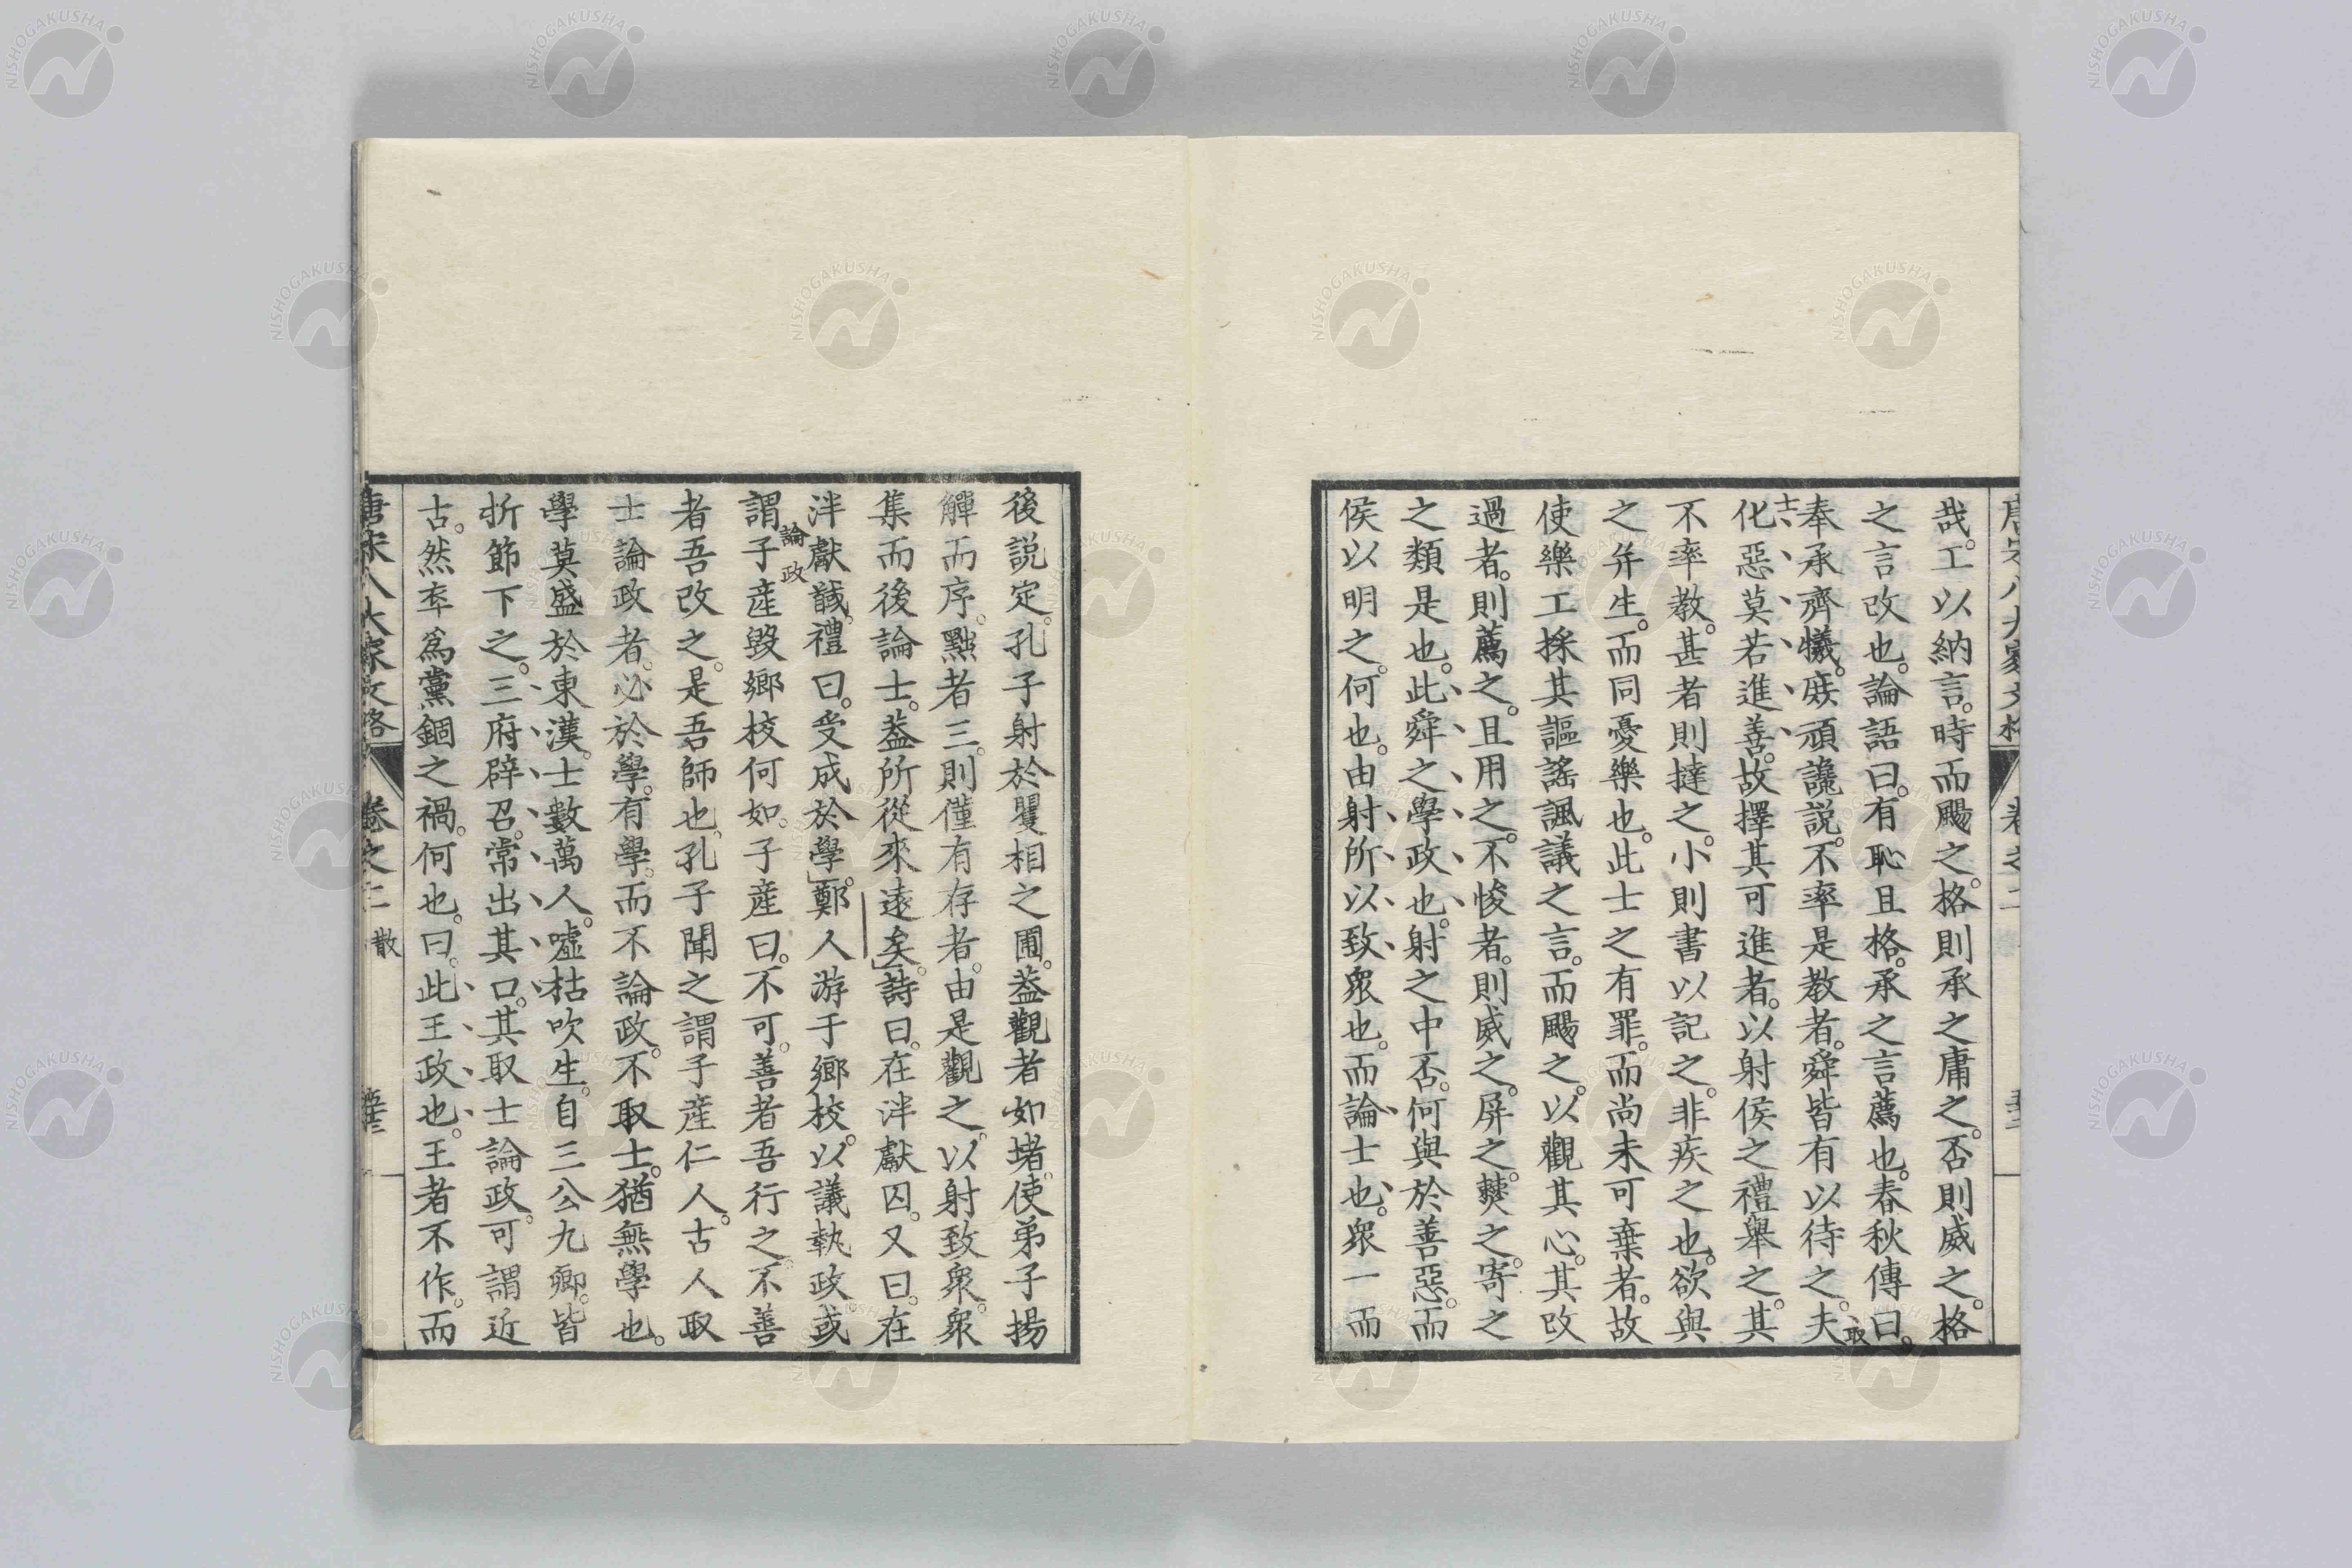 哉。工以納言。時而颺之。格則承之庸之。否則威之。格
之言改也。論語曰。有恥且格。承之言薦也。春秋傳曰。
奉承齊犧。庶頑讒說。不率是教者。舜皆有以待之。夫
化惡莫若進善。故擇其可進者。以射侯之禮舉之。其
不率教甚者則撻之。小則書以記之。非疾之也。欲與
之幷生。而同憂樂也。此士之有罪。而尚未可棄者。故
使樂工採其謳謠諷議之言。而颺之。以觀其心。其改
過者。則薦之。且用之。不悛者。則威之。屏之。僰之。寄之
之類是也。此舜之學政也。射之中否。何與於善惡。而
侯以明之。何也。由射所以致衆也。而論士也。衆一而
取
士
後說定。孔子射於矍相之圃。蓋觀者如堵。使弟子揚
觶而序。點者三。則僅有存者。由是觀之。以射致衆。衆
集而後論士。蓋所從來遠矣。詩曰。在泮獻囚。又曰。在
泮獻馘。禮曰。受成於學。鄭人游于鄉校。以議執政。或
謂子產毀鄉校何如。子產曰。不可。善者吾行之。不善
者吾改之。是吾師也。孔子聞之謂子產仁人。古人取
士論政者。必於學。有學。而不論政。不取士。猶無學也。
學莫盛於東漢。士數萬人。噓枯吹生。自三公九卿。皆
折節下之。三府辟召。常出其口。其取士論政。可謂近
古。然卒爲黨錮之禍。何也。曰。此王政也。王者不作。而
論政
唐宋八大家文格
卷之二
散
NISHOGAKUSHA